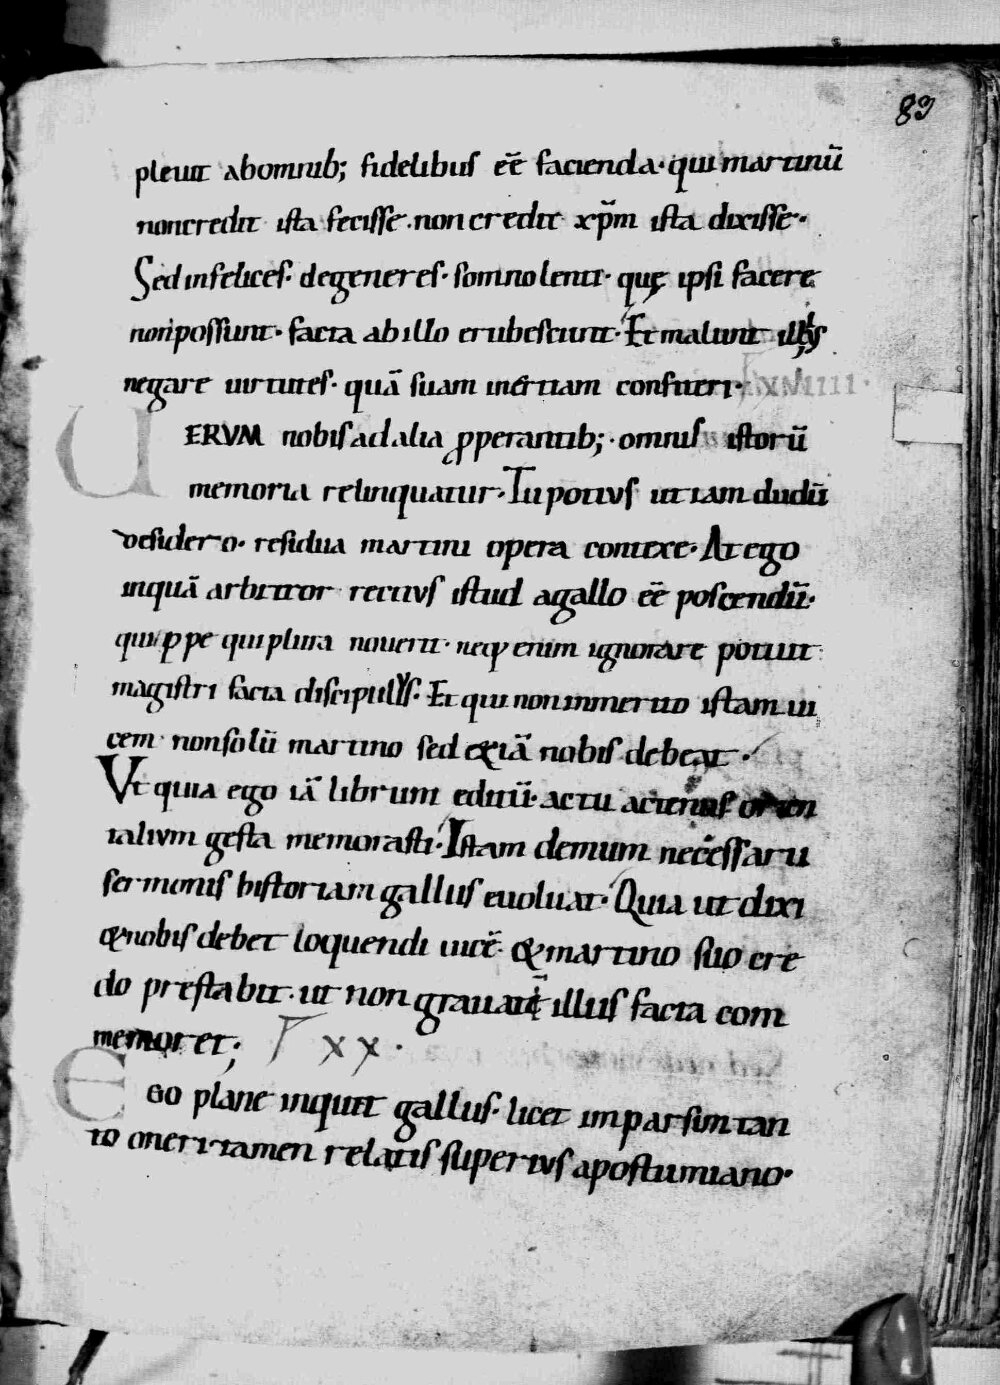 83
pleuit abomnib; fidelibus eē facienda· qui martinū
noncredit ista fecisse· non credit xp̄m ista dixisse·
Sed infelices· degeneres· somnolenti· quę ipsi facere
non possunt· facta ab illo erubescunt· Et malunt illius
negare uirtutes· quā suam inertiam confiteri· XVIIII·
UERVM nobis ad alia ꝓperantib; · omnis istorū
memoria relinquatur· Tu potius ut iam dudū
desidero· residua martini opera contexe· At ego
inquā arbitror rectius istud agallo eē poscendū·
quippe qui plura nouerit· neq; enim ignorare potuit
magistri facta discipulus· Et qui non inmerito istam ui
cem non solū martino sed &iā nobis debeat·
Vt quia ego iā librum edidi· ac tu actenus orien
talium gesta memorasti· Istam demum necessarii
sermonis historiam gallus euoluat· Quia ut dixi
& nobis debet loquendi uicē· & martino suo cre
do prestabit· ut non grauatē illius facta com
memoret; XX·
EGO plane inquit gallus· licet impar sim tan
to oneri· tamen relatis superius apostumiano·